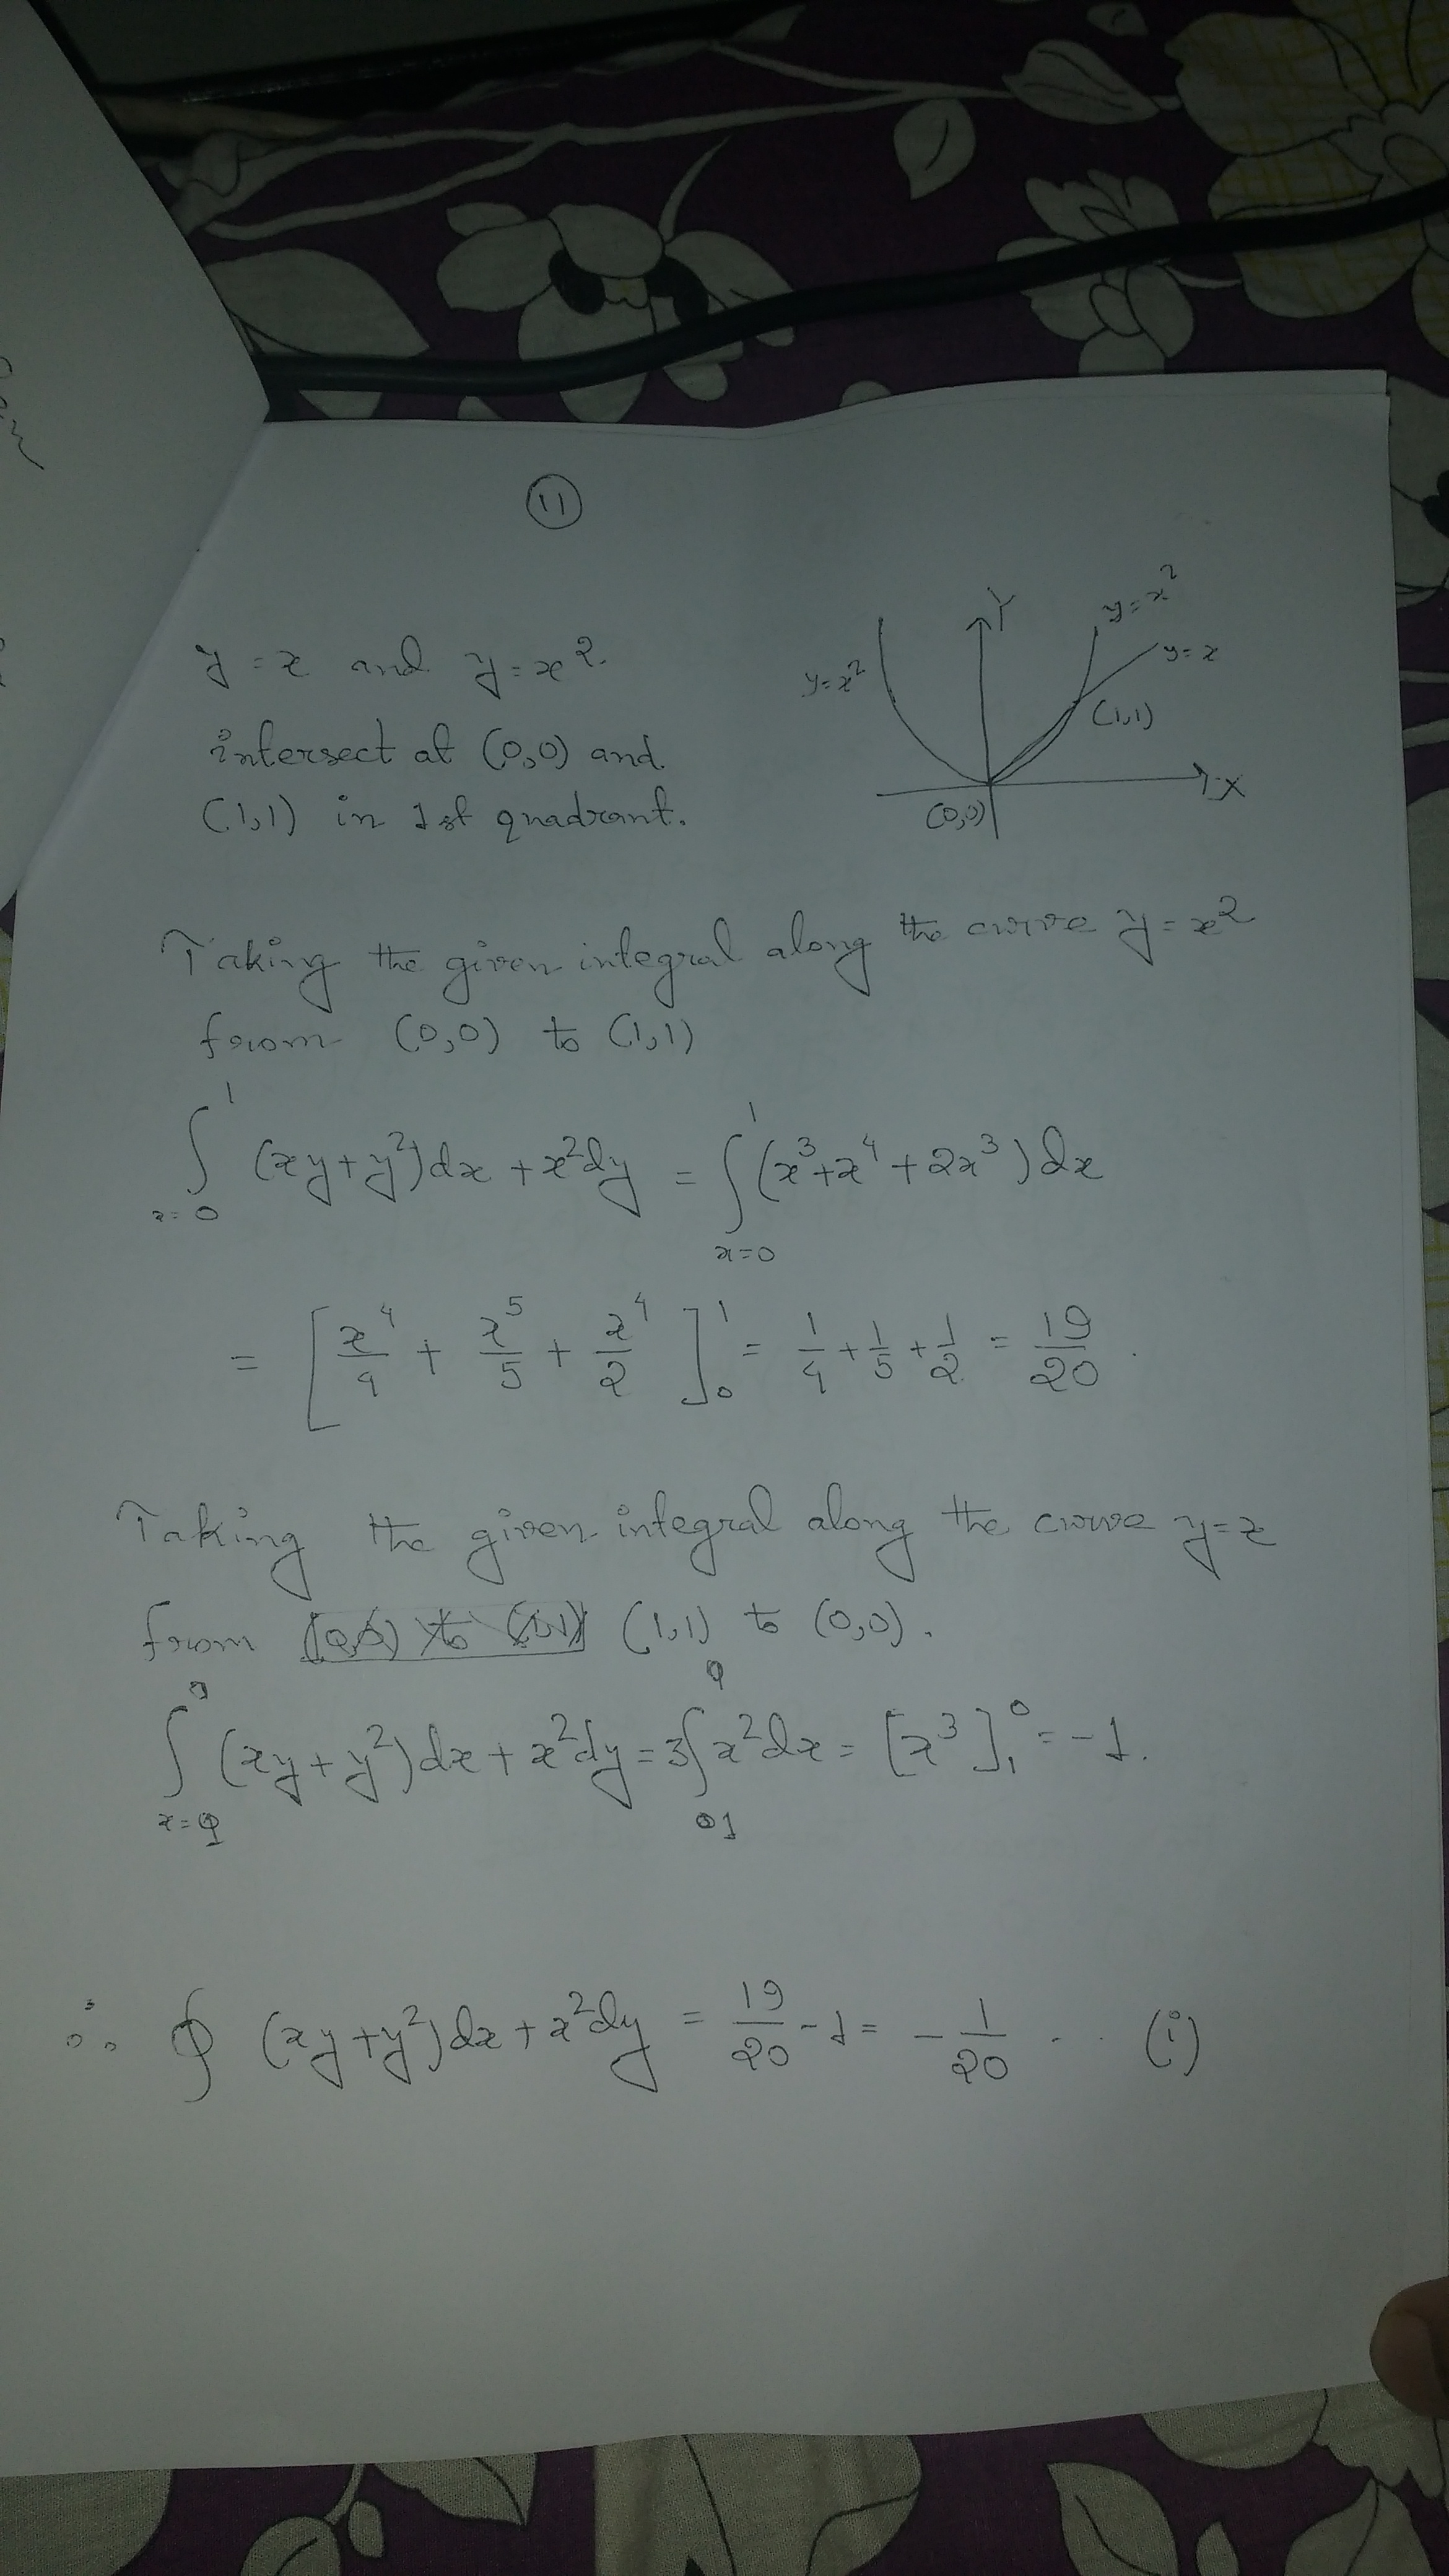 11
y = x and y = x²
intersect at (0,0) and
(1,1) in 1st quadrant.
Y
y = x²
y = x
y = x²
(1,1)
X
(0,0)
Taking the given integral along the curve y = x²
from (0,0) to (1,1)
∫_{x=0}^{1} (xy+y²)dx + x²dy = ∫_{x=0}^{1} (x³+x⁴+2x³)dx
= [x⁴/4 + x⁵/5 + x⁴/2]_0^1 = 1/4 + 1/5 + 1/2 = 19/20.
Taking the given integral along the curve y=x
from (1,1) to (0,0).
∫_{x=1}^{0} (xy+y²)dx + x²dy = 3∫_{1}^{0} x²dx = [x³]_1^0 = -1.
∴ ∮ (xy+y²)dx + x²dy = 19/20 - 1 = - 1/20 ... (i)